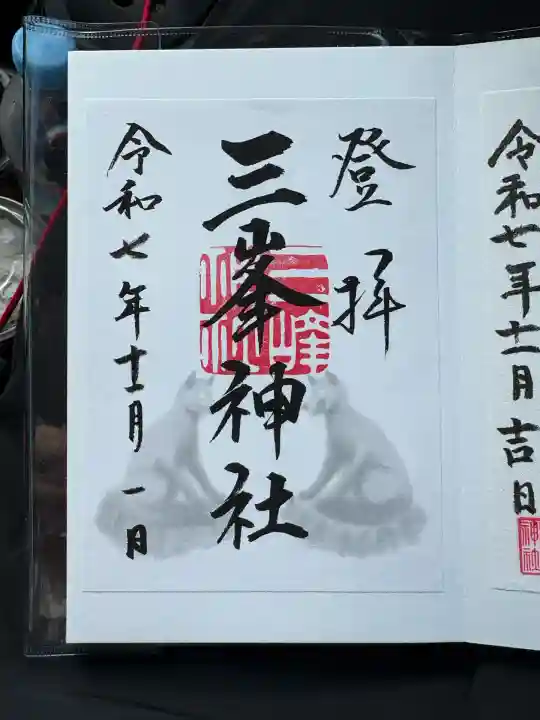 登拝
三峯神社
令和七年十一月一日
令和七年十一月吉日
神社